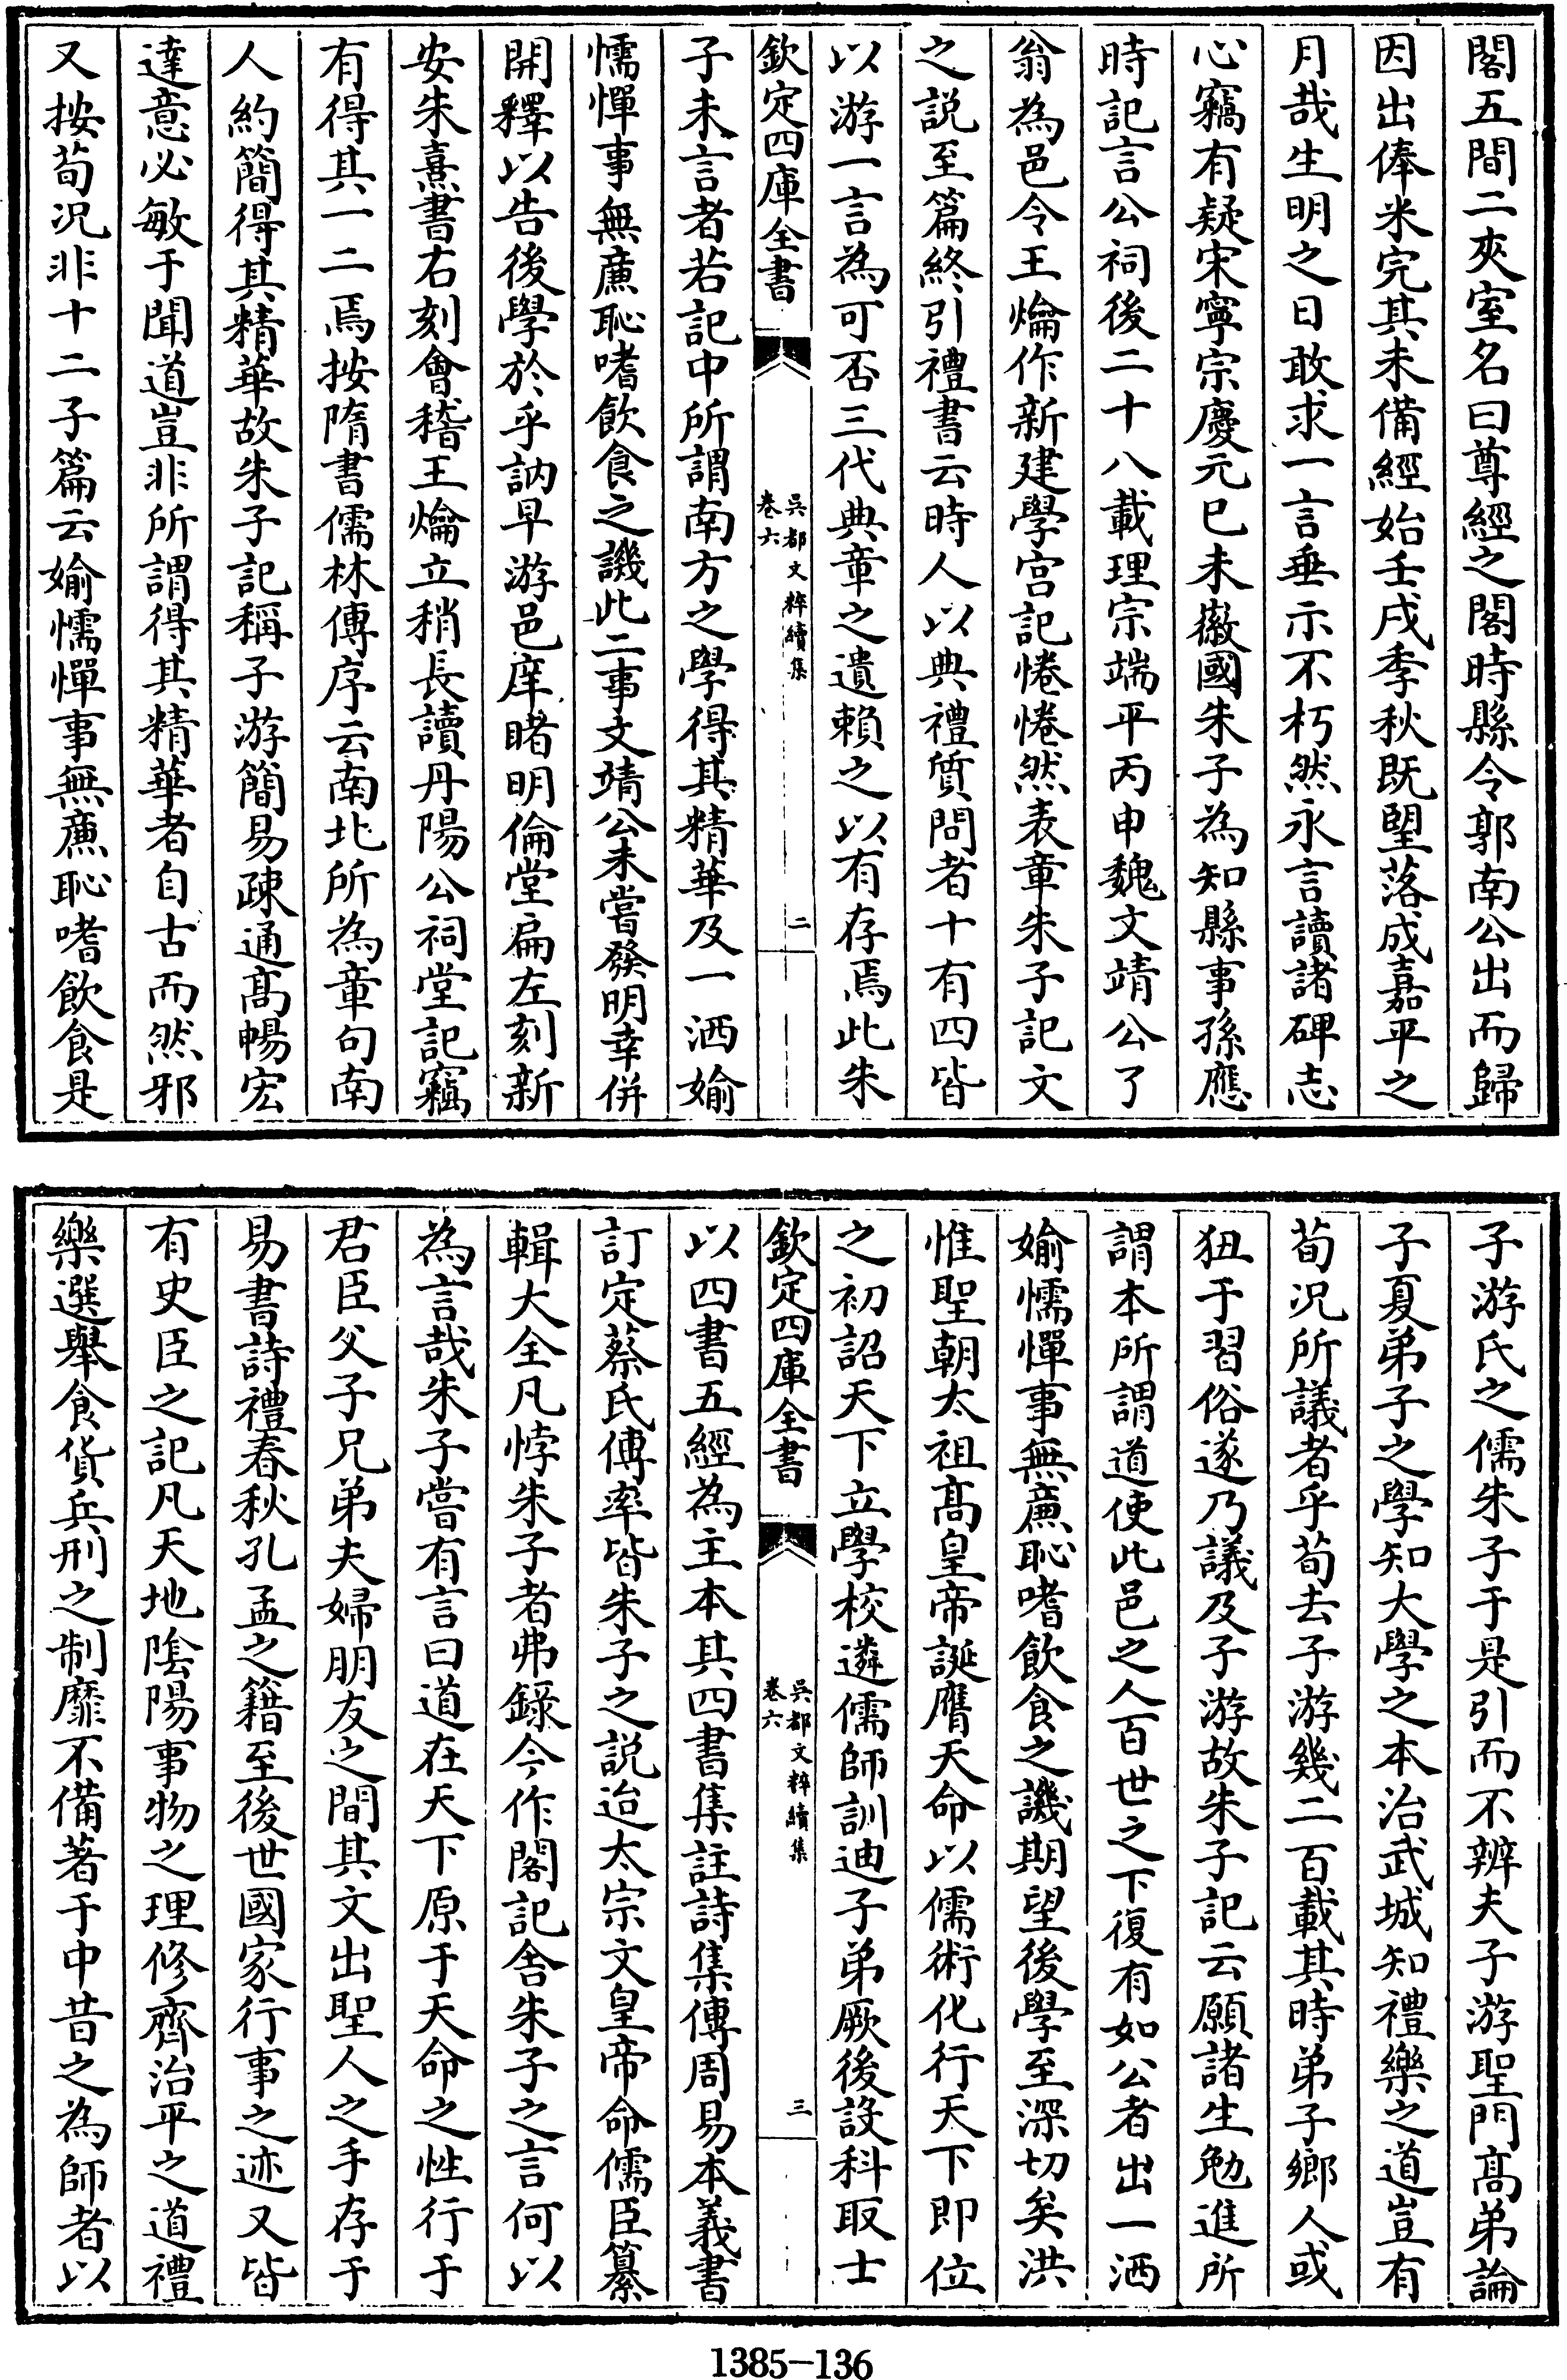 閣五間二夾室名曰尊經之閣時縣令郭南公出而歸
因出俸米完其未備經始壬戌季秋既朢落成嘉平之
月哉生明之日敢求一言垂示不朽然永言讀諸碑志
心竊有疑宋寧宗慶元巳未徽國朱子為知縣事孫應
時記言公祠後二十八載理宗端平丙申魏文靖公了
翁為邑令王爚作新建學宫記惓惓然表章朱子記文
之説至篇終引禮書云時人以典禮質問者十有四皆
以游一言為可否三代典章之遺賴之以有存焉此朱
欽定四庫全書
吳都文粹續集
卷六
二
子未言者若記中所謂南方之學得其精華及一洒媮
懦憚事無廉恥嗜飲食之譏此二事文靖公未嘗發明幸併
開釋以告後學於乎訥早游邑庠睹明倫堂扁左刻新
安朱熹書右刻會稽王爚立稍長讀丹陽公祠堂記竊
有得其一二焉按隋書儒林傳序云南北所為章句南
人約簡得其精華故朱子記稱子游簡易疎通髙暢宏
達意必敏于聞道豈非所謂得其精華者自古而然邪
又按荀况非十二子篇云媮懦憚事無廉恥嗜飲食是
子游氏之儒朱子于是引而不辨夫子游聖門髙弟論
子夏弟子之學知大學之本治武城知禮樂之道豈有
荀况所議者乎荀去子游幾二百載其時弟子鄉人或
狃于習俗遂乃議及子游故朱子記云願諸生勉進所
謂本所謂道使此邑之人百世之下復有如公者出一洒
媮懦憚事無廉恥嗜飲食之譏期望後學至深切矣洪
惟聖朝太祖髙皇帝誕膺天命以儒術化行天下即位
之初詔天下立學校遴儒師訓迪子弟厥後設科取士
欽定四庫全書
吳都文粹續集
卷六
三
以四書五經為主本其四書集註詩集傳周易本義書
訂定蔡氏傳率皆朱子之説迨太宗文皇帝命儒臣纂
輯大全凡悖朱子者弗錄今作閣記舍朱子之言何以
為言哉朱子嘗有言曰道在天下原于天命之性行于
君臣父子兄弟夫婦朋友之間其文出聖人之手存于
易書詩禮春秋孔孟之籍至後世國家行事之迹又皆
有史臣之記凡天地隂陽事物之理修齊治平之道禮
樂選舉食貨兵刑之制靡不備著于中昔之為師者以
1385-136